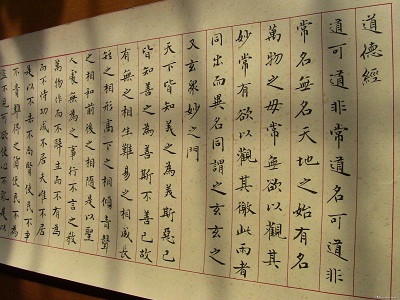 道德經
道可道非常道名可道非
常名無名天地之始有名
萬物之母常無欲以觀其
妙常有欲以觀其徼此兩者
同出而異名同謂之玄玄之
又玄衆妙之門
天下皆知美之為美斯惡已
皆知善之為善斯不善已故
有無之相生難易之相成長
短之相形高下之相傾音聲
之相和前後之相隨是以聖
人處無為之事行不言之教
萬物作而不辭生而不有為
而不恃功成不居夫唯不居
是以不去不尚賢使民不爭
不貴難得之貨使民不為
盜不見可欲使心不亂是以